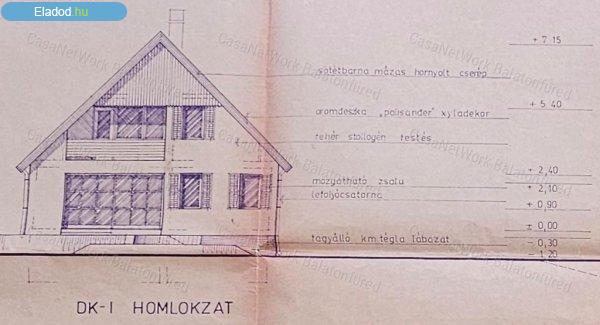 Eladod.hu
CasaNetWork Balatonfüred
+ 7.15
sötétbarna mázas hornyolt cserép
oromdeszka „palisander" xyladekor
+ 5.40
fehér stollogén festés
mozgatható zsalu
+ 2,40
lefolyócsatorna
+ 2,10
+ 0,90
± 0,00
fagyálló km. tégla lábazat
- 0,30
- 1,20
DK-I HOMLOKZAT